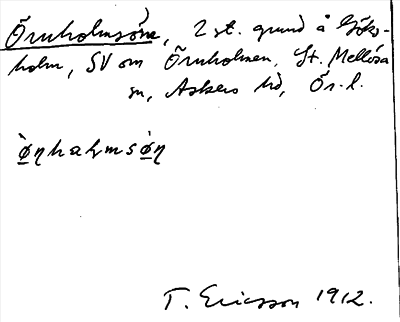 Örnholmsöra, 2 st. grund å Göks-
holm, SV om Örnholmen, St. Mellösa
sn, Askers hd, Ör. l.
T. Ericsson 1912.